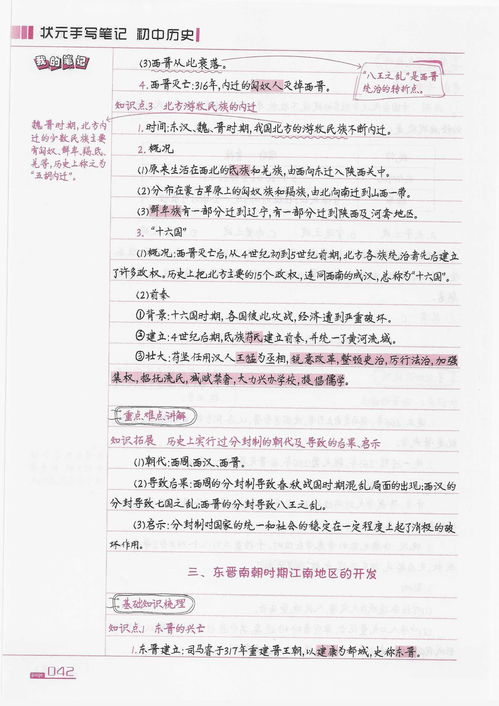 状元手写笔记 初中历史
我的笔记
(3)西晋从此衰落。
"八王之乱"是西晋
统治的转折点。
4.西晋灭亡:316年,内迁的匈奴人灭掉西晋。
知识点3 北方游牧民族的内迁
魏晋时期,北方内
迁的少数民族主要
有匈奴、鲜卑、羯、氐、
羌等,历史上称之为
"五胡内迁"。
1.时间:东汉、魏、晋时期,我国北方的游牧民族不断内迁。
2.概况
(1)原来生活在西北的氐族和羌族,由西向东迁入陕西关中。
(2)分布在蒙古草原上的匈奴族和羯族,由北向南迁到山西一带。
(3)鲜卑族有一部分迁到辽宁,有一部分迁到陕西及河套地区。
3."十六国"
(1)概况:西晋灭亡后,从4世纪初到5世纪前期,北方各族统治者先后建立
了许多政权。历史上把北方主要的15个政权,连同西南的成汉,总称为"十六国"。
(2)前秦
①背景:十六国时期,各国彼此攻战,经济遭到严重破坏。
②建立:4世纪后期,氐族苻氏建立前秦,并统一了黄河流域。
③壮大:苻坚任用汉人王猛为丞相,锐意改革,整顿吏治,厉行法治,加强
集权,招抚流民,减赋禁奢,大力兴办学校,提倡儒学。
重点难点讲解
知识拓展 历史上实行过分封制的朝代及导致的后果、启示
(1)朝代:西周、西汉、西晋。
(2)导致后果:西周的分封制导致春秋战国时期混乱局面的出现;西汉的
分封导致七国之乱;西晋的分封导致八王之乱。
(3)启示:分封制对国家的统一和社会的稳定在一定程度上起了消极的破
坏作用。
三、东晋南朝时期江南地区的开发
基础知识梳理
知识点1 东晋的兴亡
1.东晋建立:司马睿于317年重建晋王朝,以建康为都城,史称东晋。
page 042